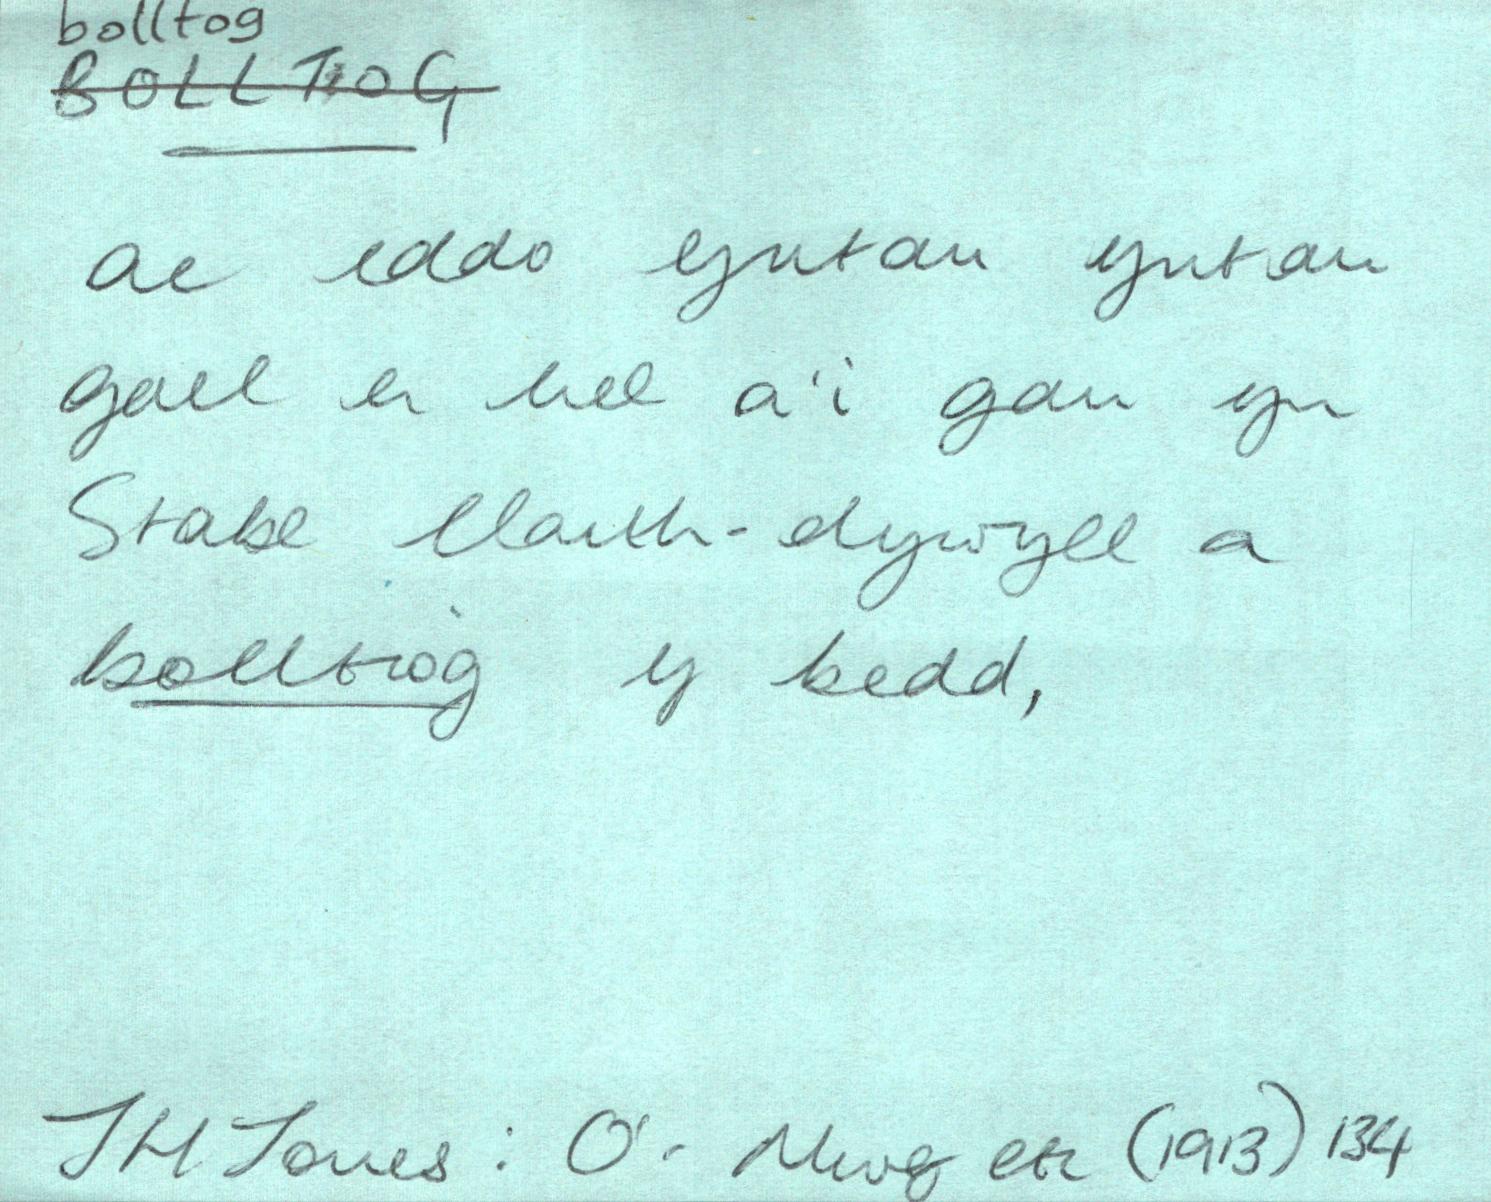 bolltog
BOLLTIOG
ac eddo yntau yntau
gael ei hel a'i gau yn
Stabl llaith-dywyll a
bolltiog y bedd,
JH Jones: O'r Mwg etc (1913) 134